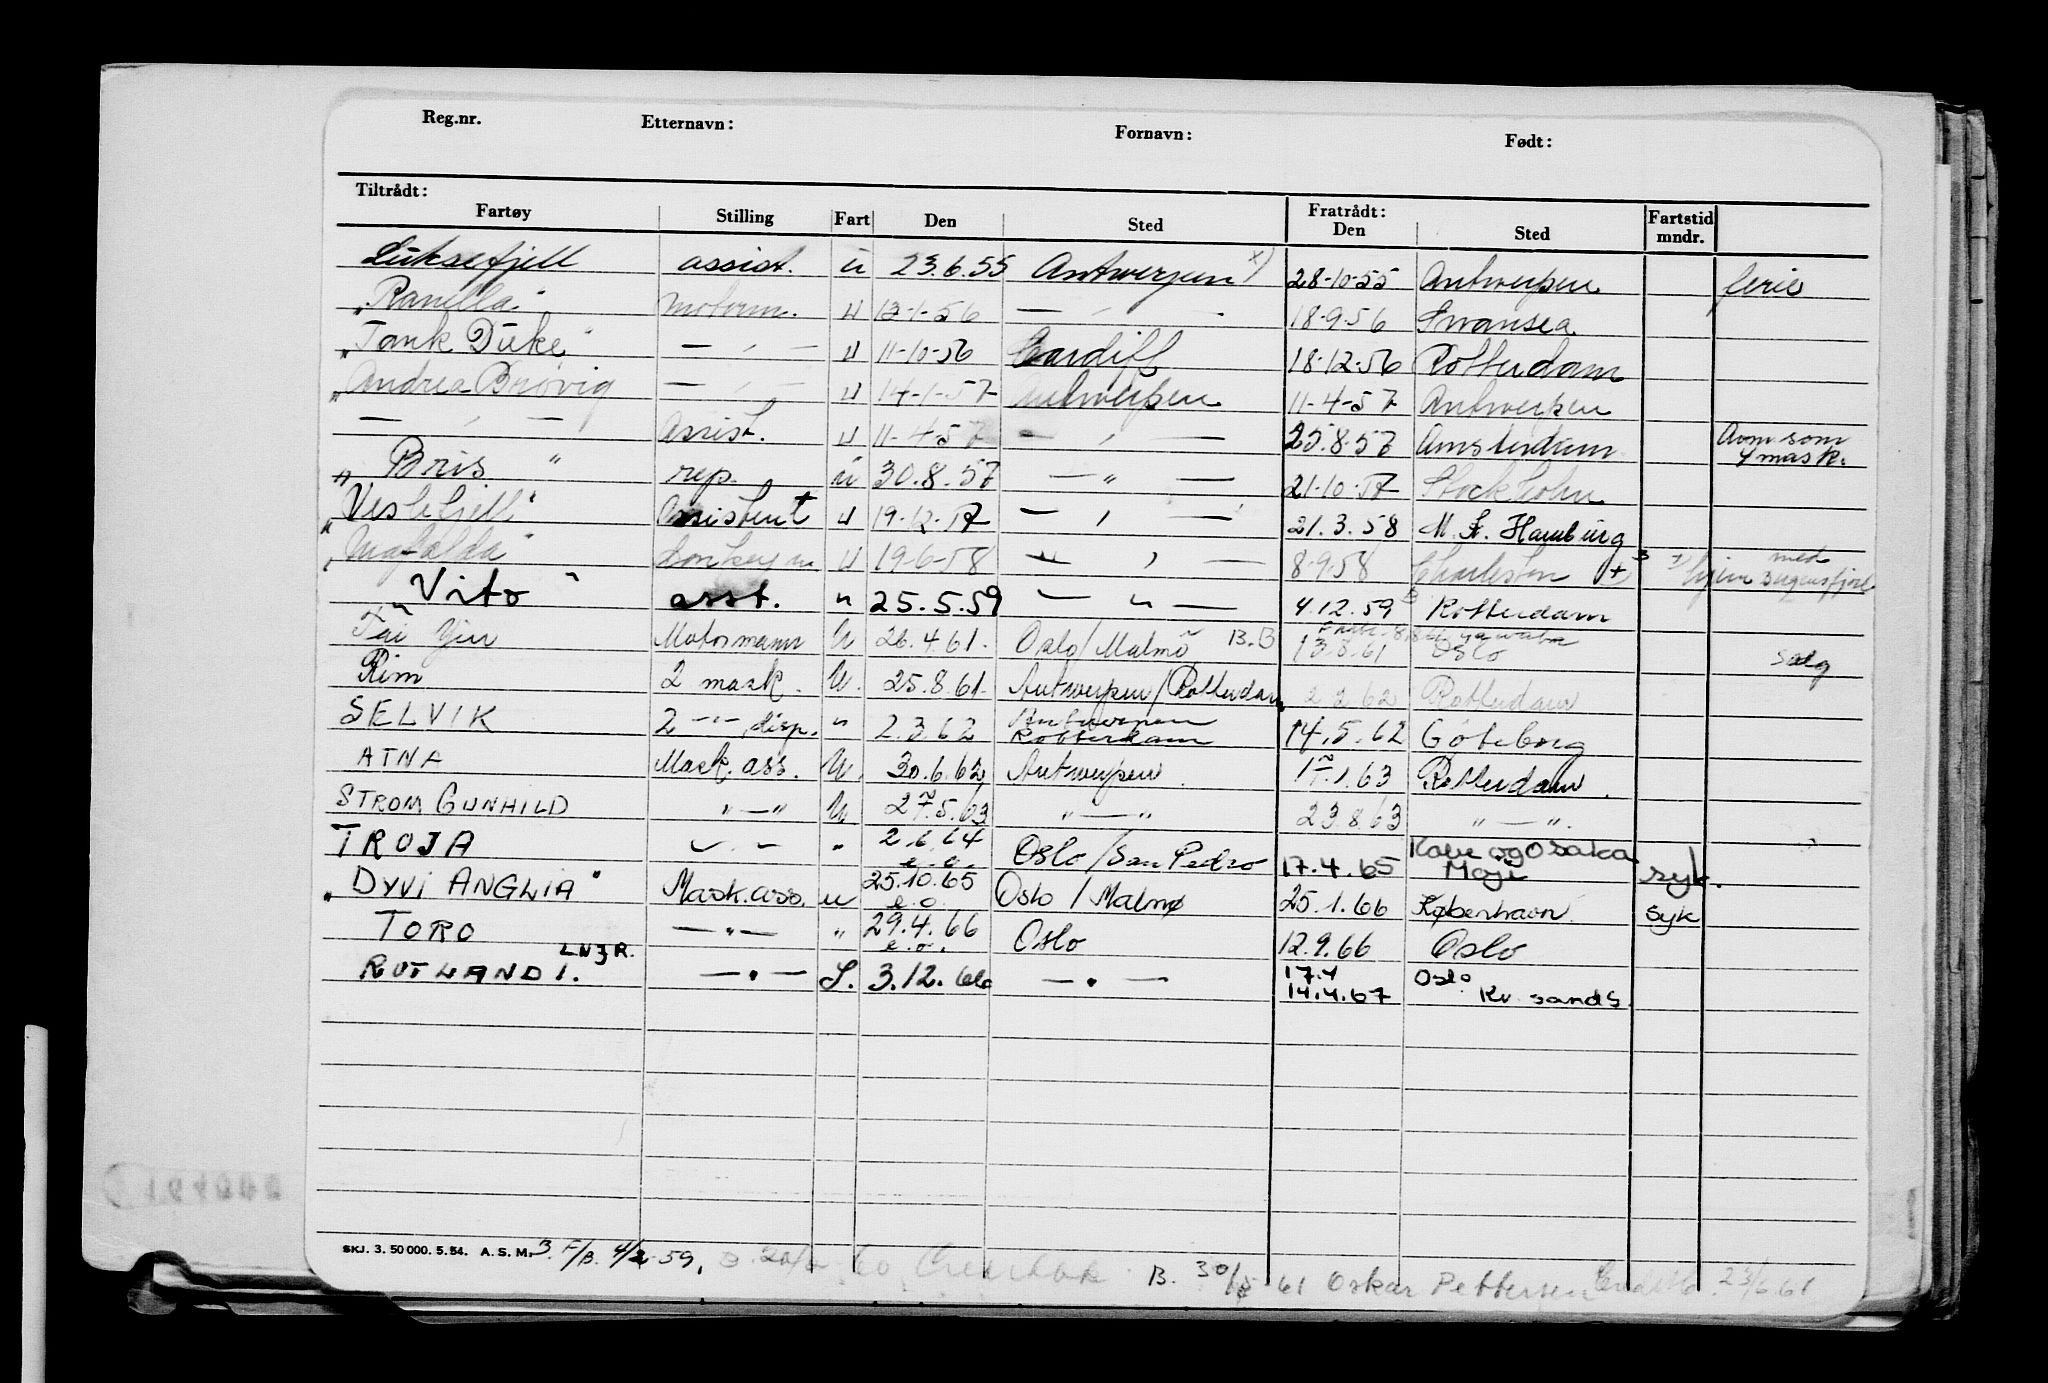 Reg.nr. Etternavn: Fornavn: Født:
Tiltrådt: Fratrådt: Fartstid
Fartøy Stilling Fart Den Sted Den Sted mndr.
Luksefjell assist. u 23.6.55 Antwerpen x) 28-10-55 Antwerpen ferie
"Ranella" motorm. u 13-1-56 — " — 18-9-56 Swansea
"Tank Duke" — " — u 11-10-56 Cardiff 18-12-56 Rotterdam
"Andrea Brøvig — " — u 14-1-57 Antwerpen 11-4-57 Antwerpen
— " — Assist. u 11-4-57 — " — 25.8.57 Amsterdam Avm som
4 mask.
" Bris " rep. u 30.8.57 — " — 21-10-57 Stockholm
"Veslefjell" Assistent u 19-12-57 — " — 21.3.58 M. A. Hamburg
"Mafalda" Donkeym u 19-6-58 — " — 8-9-58 Charleston + hjem med
Vito " asst. " 25.5.59 — " — 4.12.59 Rotterdam
Tai Yin Motormann U 26.4.61. Oslo/Malmö B.B 13.8.61 Oslo salg
Rim 2 mask. U. 25.8.61. Antwerpen/Rotterdam 2 2 62 Rotterdam
SELVIK 2 —"— disp. " 2.3.62 Antwerpen
Rotterdam 14.5.62 Göteborg
ATNA Mask. ass. U. 30.6.62 Antwerpen 17.1.63 Rotterdam.
STROM GUNHILD "—" U 27.5.63 "—" 23.8.63 "—".
TROJA " - " " 2.6.64
e.o. Oslo/San Pedro 17.4.65 Kobe og Osaka
Moji syk.
"DYVI ANGLIA" Mask.ass. u 25.10.65
e.o. Oslo / Malmø 25.1.66 København syk
TORO —"— " 29.4.66
e.o. Oslo 12.9.66 Oslo
RUTLAND I. LNZR. —"— S. 3.12.66 —"— 17.4
14.4.67 Oslo
Kr. sands.
SKJ. 3. 50 000. 5. 54. A. S. M. 3. F/B. 4/2-59, B. 30/5-61 Oskar Pettersen 23/6.61